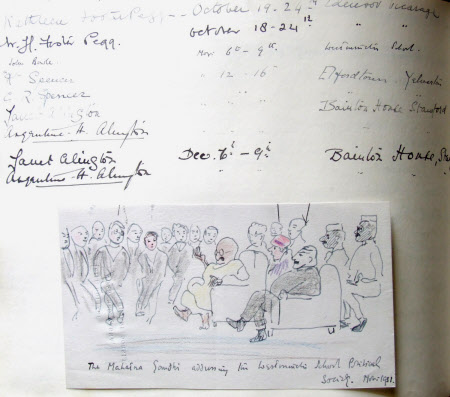 Kathleen Foster Pegg -- October 19-24th
W. H. Foster Pegg. October 18-24th " "
John Bude. Nov 6th - 9th. Westminster School.
" 12 - 16
C Spencer " "
Janet Alington " " Bainton House Stamford
Argentine. H. Alington " "
Janet Alington Dec. 6th - 9th Bainton House, Sta
Argentine. H. Alington " "
The Mahatma Gandhi addressing the Westminster School Political
Society. Nov. 1931.